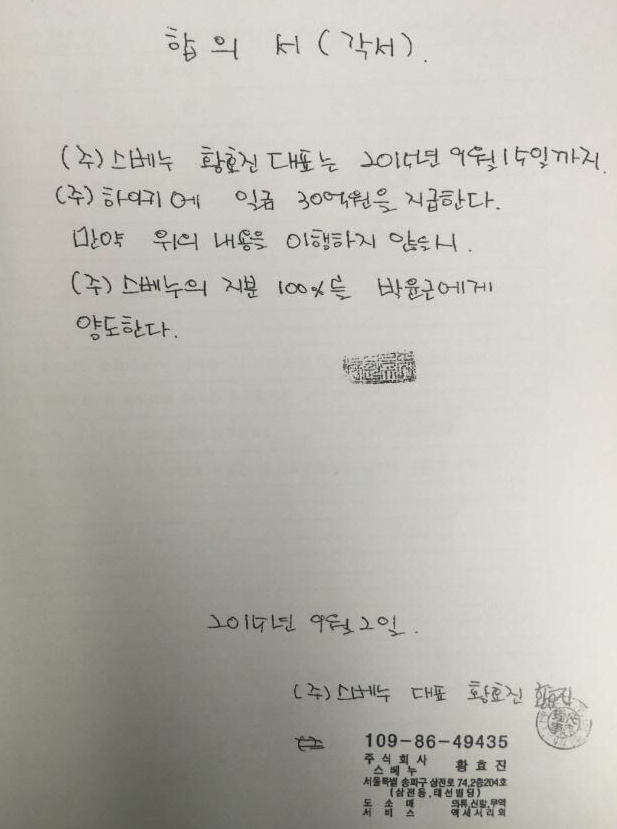 합의서(각서).
(주)스베누 황효진 대표는 2015년 9월 15일까지.
(주)하이키에 일금 30억원을 지급한다.
만약 위의 내용을 이행하지 않을시.
(주)스베누의 지분 100%를 박윤근에게
양도한다.
2015년 9월 2일.
(주)스베누 대표 황효진 황효진
109-86-49435
주식회사
스베누 황효진
서울특별 송파구 삼전로 74,2층204호
(삼전동,태선빌딩)
도소매 의류,신발,무역
서비스 액세서리외